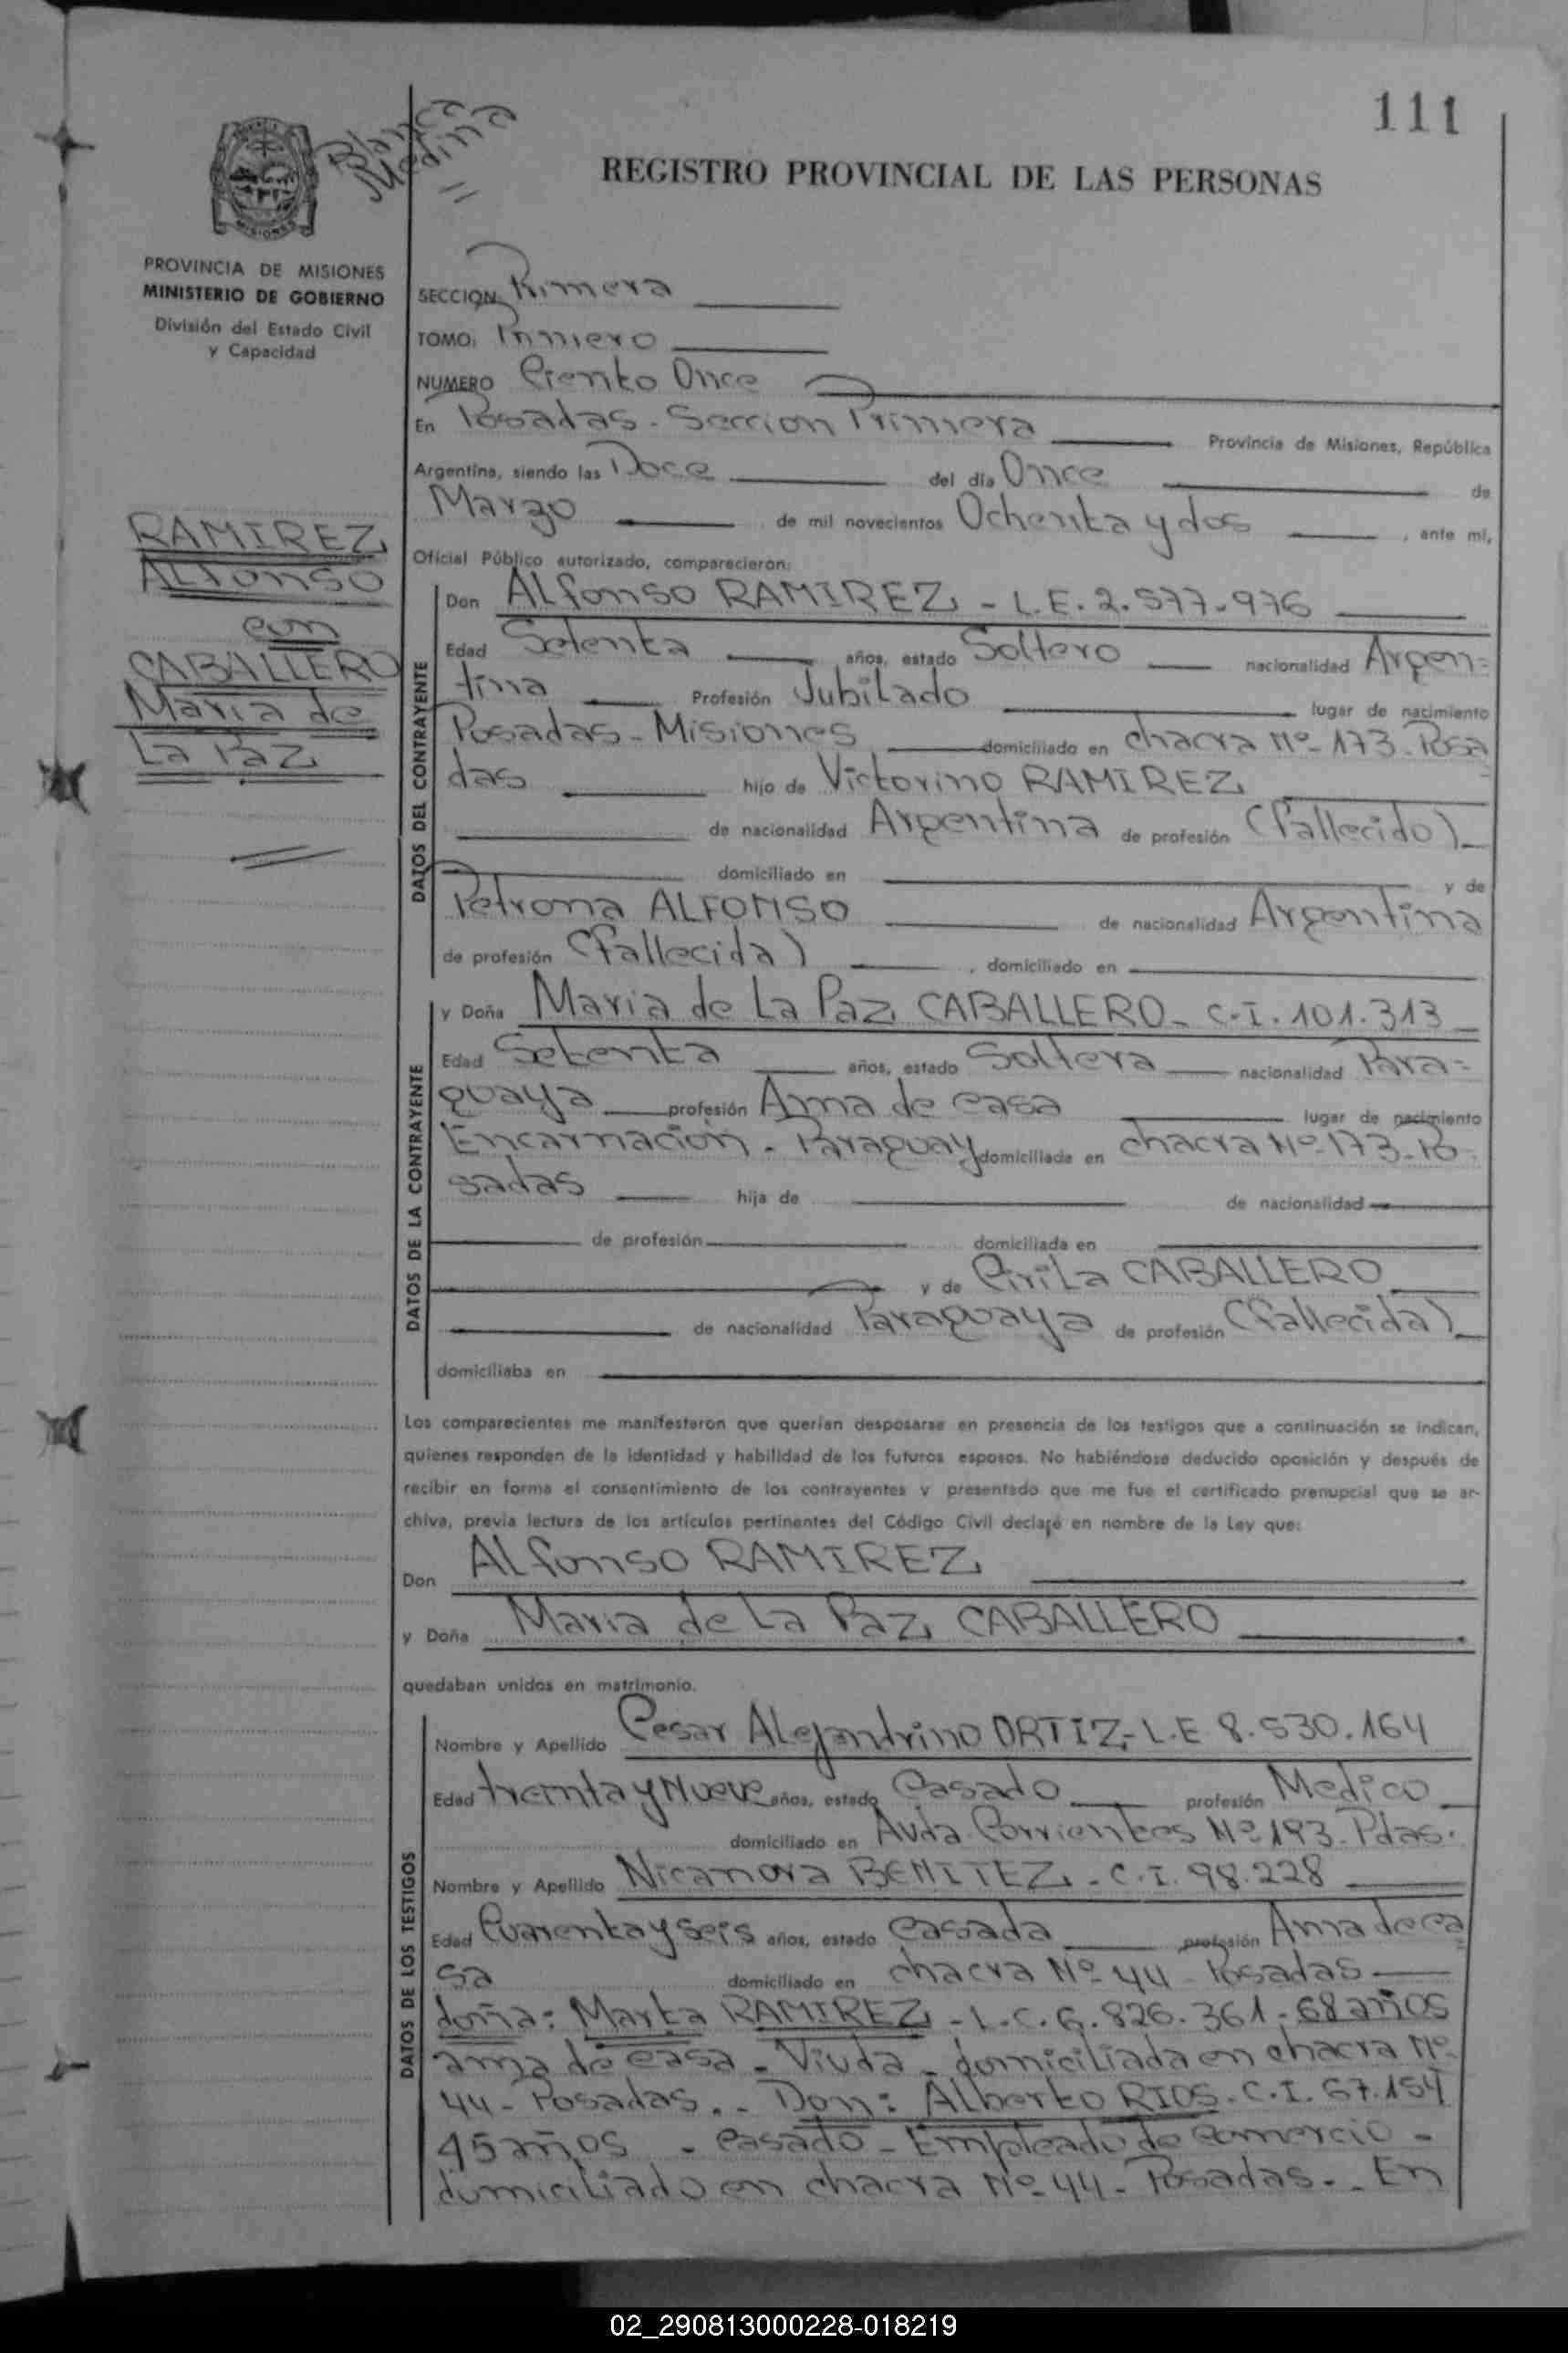 111
Blanca
Medina
REGISTRO PROVINCIAL DE LAS PERSONAS
MISIONES
PROVINCIA DE MISIONES
MINISTERIO DE GOBIERNO
División del Estado Civil
y Capacidad
SECCION: Primera
TOMO: Primero
NUMERO Ciento Once
En Posadas - Seccion Primera Provincia de Misiones, República
Argentina, siendo las Doce del día Once de
Marzo de mil novecientos Ochenta y dos, ante mí,
Oficial Público autorizado, comparecieron:
RAMIREZ
ALfonso
con
CABALLERO
Maria de
La Paz
DATOS DEL CONTRAYENTE
Don ALfonso RAMIREZ - L.E. 2.577.976
Edad Setenta años, estado Soltero nacionalidad Argen=
tina Profesión Jubilado lugar de nacimiento
Posadas - Misiones domiciliado en chacra Nº 173 - Posa
das hijo de Victorino RAMIREZ
de nacionalidad Argentina de profesión (fallecido)
domiciliado en y de
Petrona ALFONSO de nacionalidad Argentina
de profesión (fallecida), domiciliado en
DATOS DE LA CONTRAYENTE
y Doña Maria de La Paz CABALLERO - C.I. 101.313
Edad Setenta años, estado Soltera nacionalidad Para=
guaya profesión Ama de casa lugar de nacimiento
Encarnación - Paraguay domiciliada en chacra Nº 173 - Po=
sadas hija de de nacionalidad
de profesión domiciliada en
y de Cirila CABALLERO
de nacionalidad Paraguaya de profesión (fallecida)
domiciliaba en
Los comparecientes me manifestaron que querían desposarse en presencia de los testigos que a continuación se indican,
quienes responden de la identidad y habilidad de los futuros esposos. No habiéndose deducido oposición y después de
recibir en forma el consentimiento de los contrayentes y presentado que me fue el certificado prenupcial que se ar-
chiva, previa lectura de los artículos pertinentes del Código Civil declaré en nombre de la Ley que:
Don ALfonso RAMIREZ
y Doña Maria de La Paz CABALLERO
quedaban unidos en matrimonio.
DATOS DE LOS TESTIGOS
Nombre y Apellido Cesar Alejandrino ORTIZ - L.E 8.530.164
Edad treinta y Nueve años, estado Casado profesión Medico
domiciliado en Avda. Corrientes Nº 193 - Pdas.
Nombre y Apellido Nicanora BENITEZ - C.I. 98.228
Edad Cuarenta y seis años, estado casada profesión Ama de ca
sa domiciliado en chacra Nº 44 - Posadas
doña: Marta RAMIREZ - L.C. 6.826.361 - 68 años
ama de casa - Viuda - domiciliada en chacra Nº
44 - Posadas. - Don: Alberto RIOS - C.I. 67.154
45 años - casado - Empleado de comercio -
domiciliado en chacra Nº 44 - Posadas. - En
02_290813000228-018219